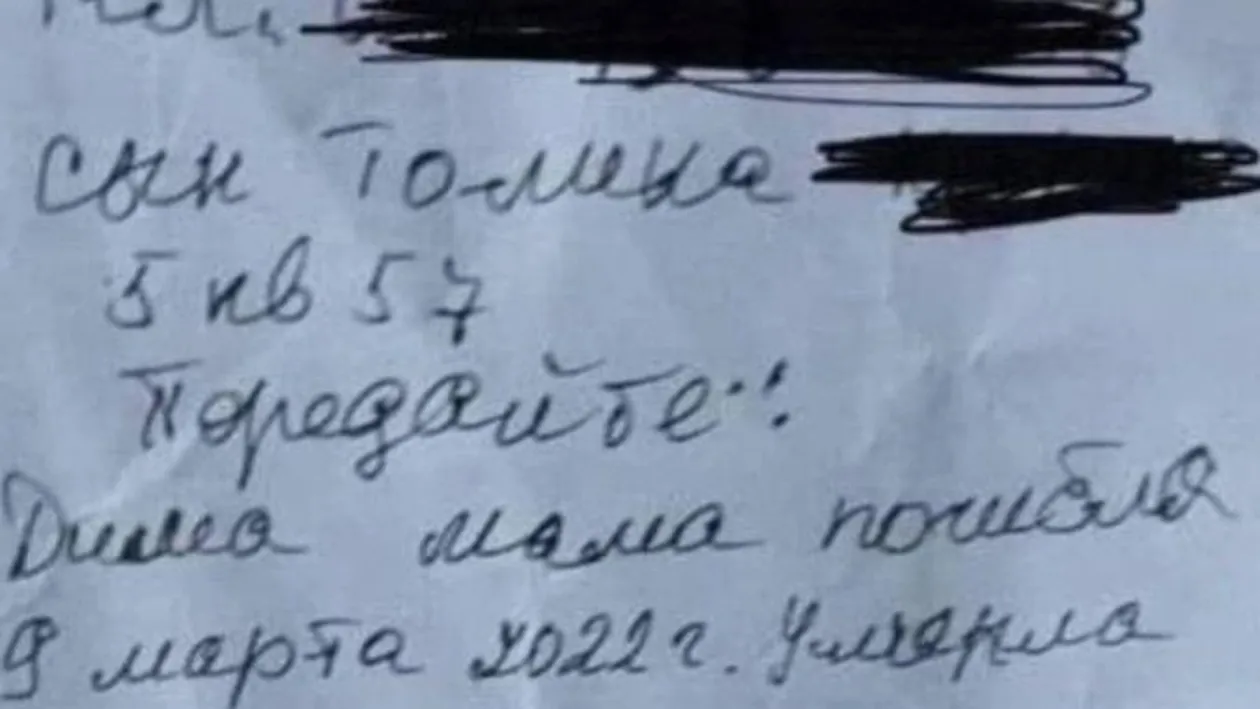 сын Толика
5 кв 57
Передайте!
Дима мама погибла
9 марта 2022 г. Умерла